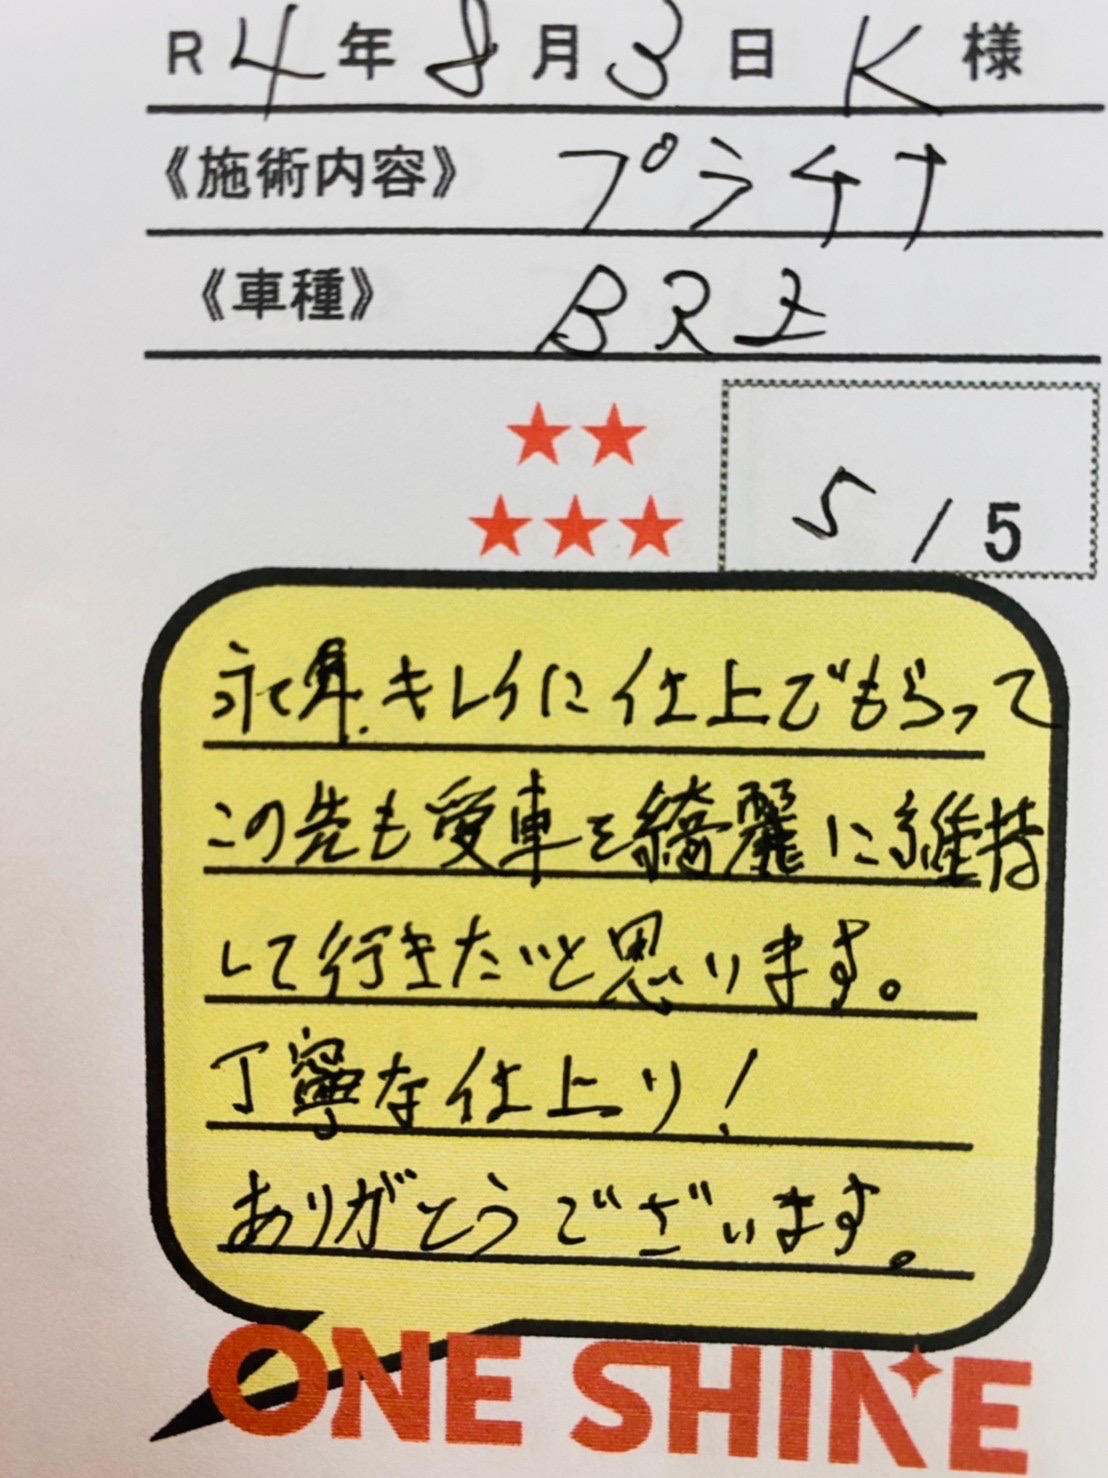 R4年8月3日 K様
《施術内容》 プラチナ
《車種》 BRZ
5 / 5
キレイに仕上でもらって
この先も愛車を綺麗に維持
して行きたいと思います。
丁寧な仕上り!
ありがとうございます。
ONE SHINE